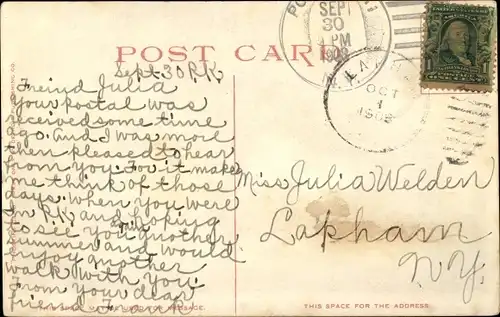 POST CARD
SEPT
30
PM
1908
OCT
1
1908
Sept. 30 R.R
Freind Julia
Your postal was
received some time
ago. And I was more
then pleased to hear
from you. For it make
me think of those
days. when you were
In R.R and hoping
to see you another
summer and would
enjoy another
walk with you.
From your dear
friend
Miss Julia Welden
Lapham
N.Y.
THIS SPACE FOR THE ADDRESS.